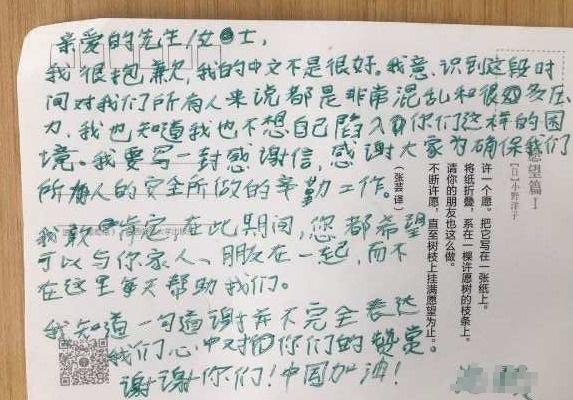 亲爱的先生/女士，
我很抱歉，我的中文不是很好。我意识到这段时
间对我们所有人来说都是非常混乱和很多压
力，我也知道我也不想自己陷入你们这样的困
境。我要写一封感谢信，感谢大家为确保我们
所有人的安全所做的辛勤工作。
我敢肯定，在此期间，您都希望
可以与你家人、朋友在一起，而不
在这里每天帮助我们。
我知道一句道谢并不完全表达
我们心中对你们的赞赏
谢谢你们！中国加油！
愿望篇 I
［日］小野洋子
许一个愿。把它写在一张纸上。
将纸折叠，系在一棵许愿树的枝条上。
请你的朋友也这么做。
不断许愿，直至树枝上挂满愿望为止。
（张芸 译）